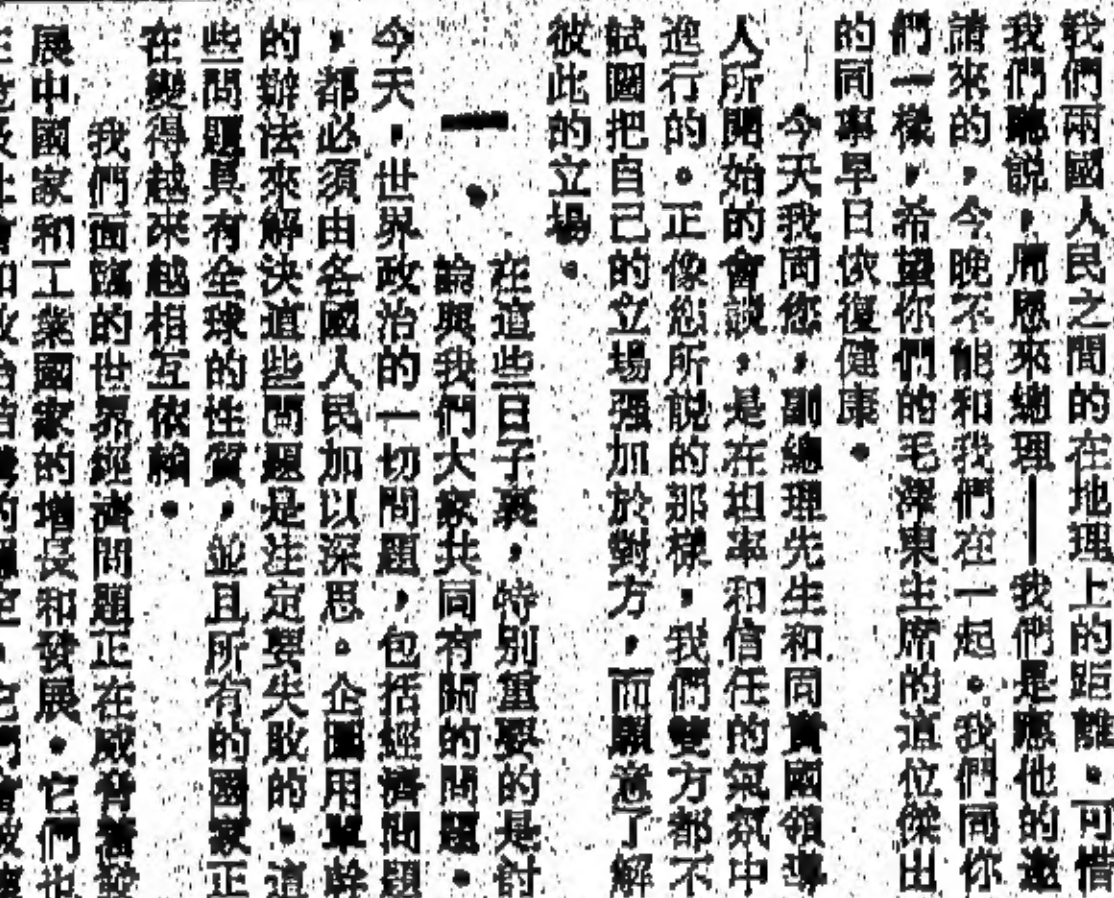 我們兩國人民之間的在地理上的距離。可惜
我們聽説,周恩來總理——我們是應他的邀
請來的,今晚不能和我們在一起。我們同你
們一樣,希望你們的毛澤東主席的這位傑出
的同事早日恢復健康。
今天我同您,副總理先生和同貴國領導
人所開始的會談,是在坦率和信任的氣氛中
進行的。正像您所説的那樣,我們雙方都不
試圖把自己的立場强加於對方,而願意了解
彼此的立場。
一。在這些日子裏,特別重要的是討
論與我們大家共同有關的問題。
今天,世界政治的一切問題,包括經濟問題
,都必須由各國人民加以深思。企圖用單幹
的辦法來解決這些問題是注定要失敗的。這
些問題具有全球的性質,並且所有的國家正
在變得越來越相互依賴。
我們面臨的世界經濟問題正在威脅着發
展中國家和工業國家的增長和發展。它們也